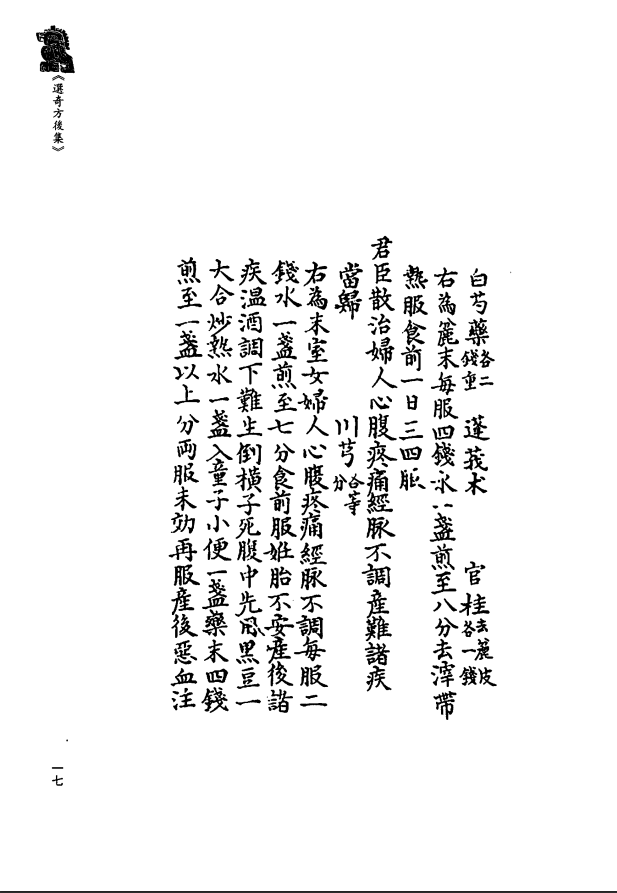 白芍藥各二錢重　蓬莪朮　官桂去麄皮各一錢
右為麄末每服四錢水一盞煎至八分去滓帶
熱服食前一日三四服
君臣散治婦人心腹疼痛經脉不調產難諸疾
當歸　川芎各等分
右為末室女婦人心腹疼痛經脉不調每服二
錢水一盞煎至七分食前服姙胎不安產後諸
疾温酒調下難生倒橫子死腹中先用黑豆一
大合炒熟水一盞入童子小便一盞藥末四錢
煎至一盞以上分兩服未効再服產後惡血注
《選奇方後集》
一七